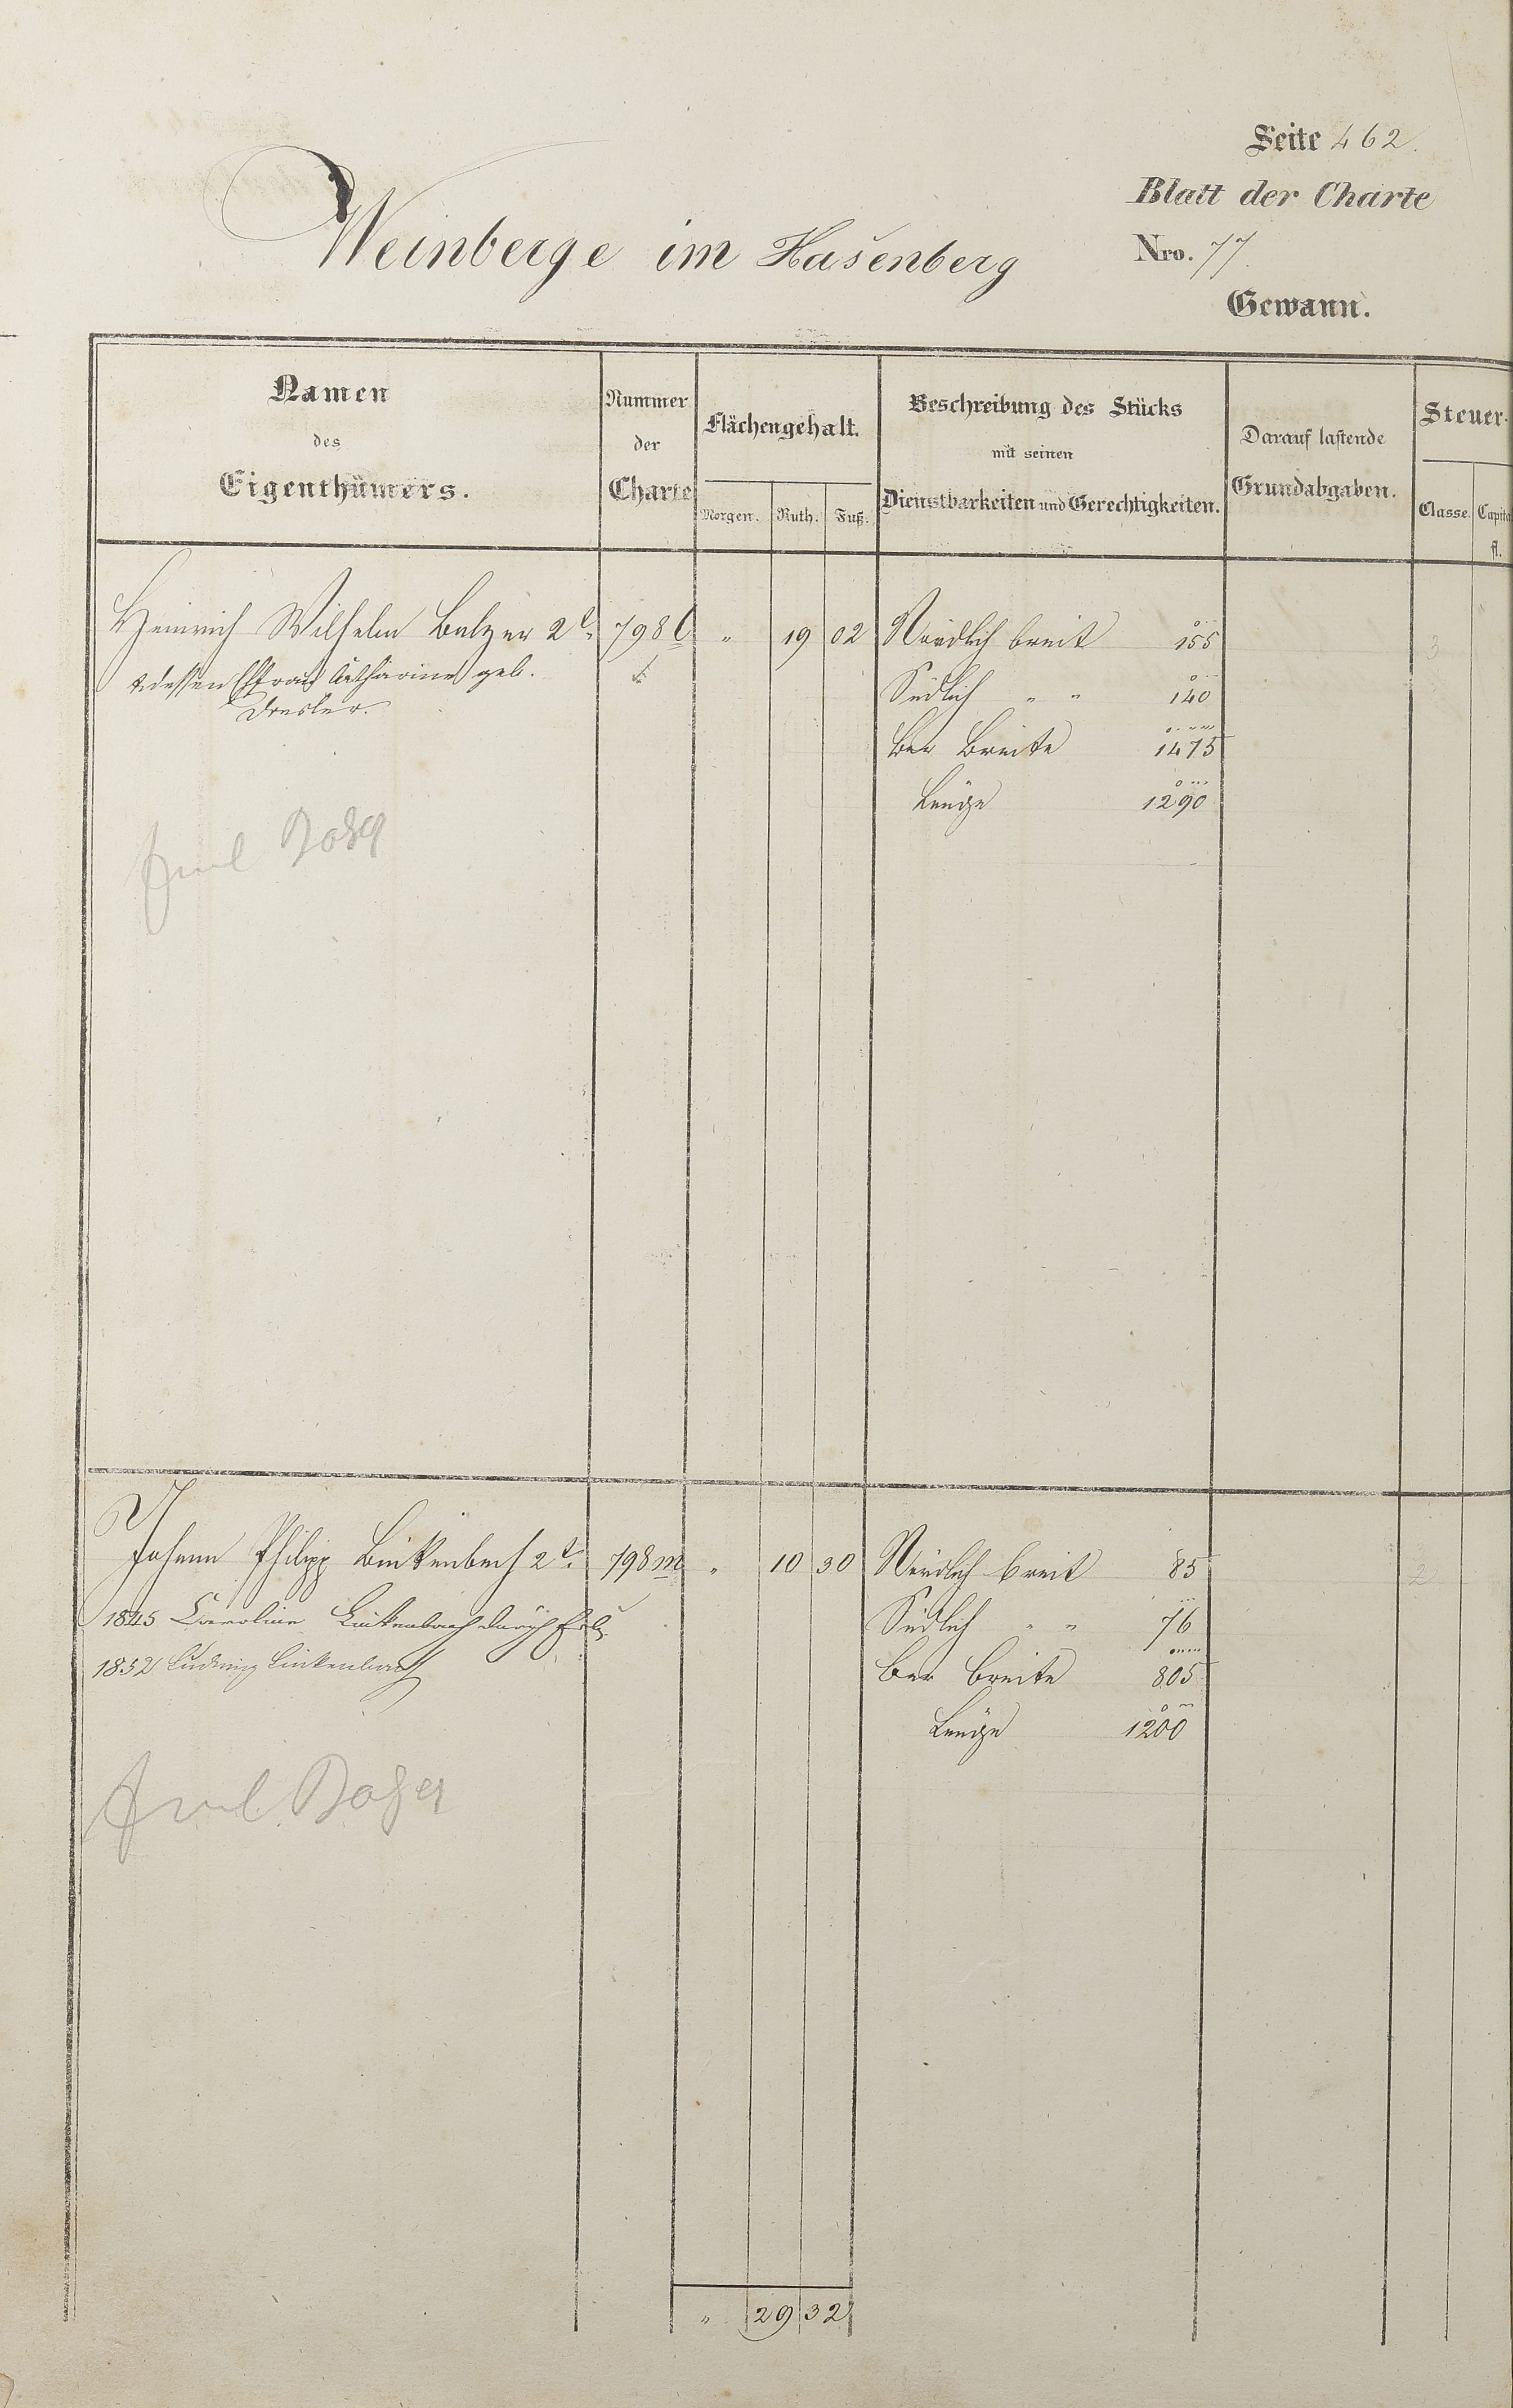 Seite 462.
Blatt der Charte
Weinberge im Hasenberg
Nro. 77.
Gewann.
Namen
des
Eigenthümers.
Nummer
der
Charte
Flächengehalt.
Morgen. Ruth. Fuß.
Beschreibung des Stücks
mit seinen
Dienstbarkeiten und Gerechtigkeiten.
Darauf lastende
Grundabgaben.
Steuer-
Classe. Capital
fl.
Heinrich Wilhelm Balzer 2t. 798 l " 19 02 Nördlich breit 155 3
dessen Ehefrau Catharine geb. Südlich " " 140
Dresler. Ber Breite 1475
Länge 1290
Emil
Johann Philipp Linkenbach 2t. 798 m " 10 30 Nördlich breit 85 2
1845 Caroline Linkenbach durch Südlich " " 76
1852 Ludwig Linkenbach Ber Breite 805
Länge 1200
Emil
" 29 32